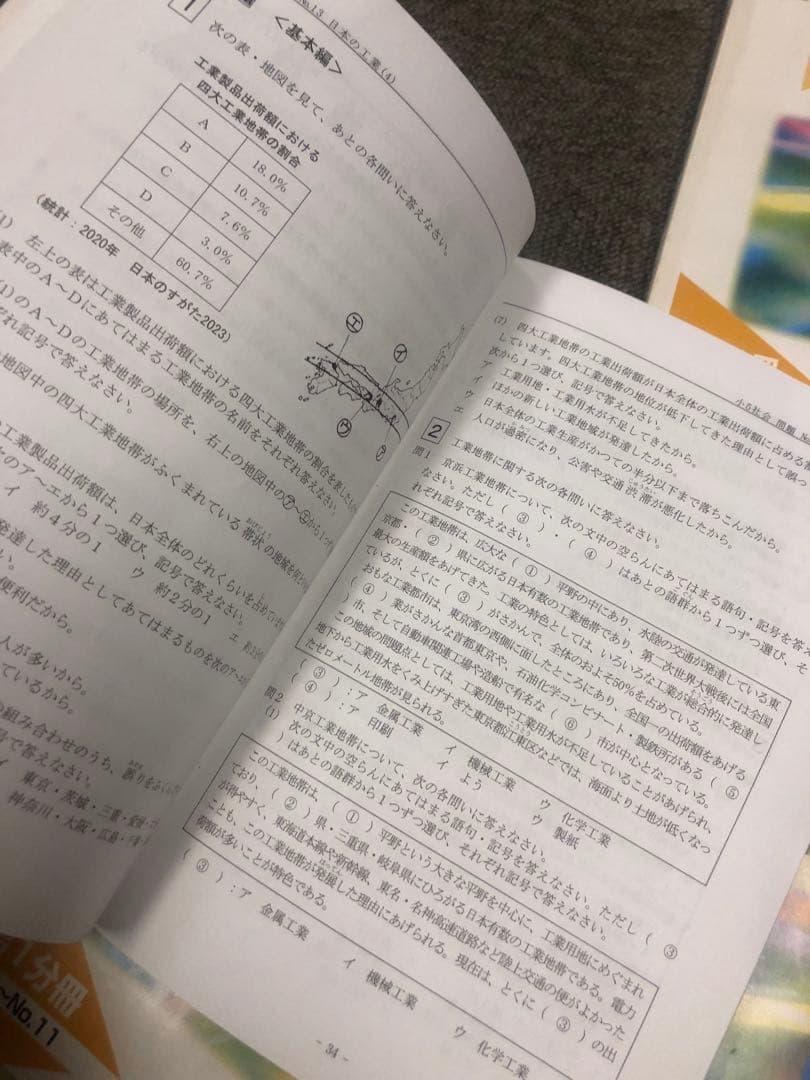 No.13 日本の工業(4)
1
＜基本編＞
次の表・地図を見て、あとの各問いに答えなさい。
工業製品出荷額における
四大工業地帯の割合
A 18.0%
B 10.7%
C 7.6%
D 3.0%
その他 60.7%
(統計：2020年 日本のすがた2023)
エ
イ
ウ
ア
左上の表は工業製品出荷額における四大工業地帯の割合を表した
表中のA～Dにあてはまる工業地帯の名前をそれぞれ答えなさい。
(1)のA～Dの工業地帯の場所を、右上の地図中の㋐～㋓から1つ
ぞれ記号で答えなさい。
地図中の四大工業地帯がふくまれている帯状の地域を何と
工業製品出荷額は、日本全体のどれくらいを占めて
のア～エから1つ選び、記号で答えなさい。
イ 約4分の1 ウ 約2分の1
発達した理由としてあてはまるものを次の
便利だから。
人が多いから。
ているから。
の組み合わせのうち、誤りをふくむ
号で答えなさい。
イ 東京・茨城・三重・愛媛
神奈川・大阪・広島・千葉
小5社会 問題
(7) 四大工業地帯の工業出荷額が日本全体の工業出荷額に占める
しています。四大工業地帯の地位が低下してきた理由として誤っ
次から1つ選び、記号で答えなさい。
ア 工業用地・工業用水が不足してきたから。
イ ほかの新しい工業地域が発達したから。
ウ 日本全体の工業生産がかつての半分以下まで落ちこんだから。
エ 人口が過密になり、公害や交通渋滞が悪化したから。
2 工業地帯に関する次の各問いに答えなさい。
問1 京浜工業地帯について、次の文中の空らんにあてはまる語句・記号を答え
なさい。ただし(③)・(④)はあとの語群から1つずつ選び、そ
れぞれ記号で答えなさい。
この工業地帯は、広大な(①)平野の中にあり、水陸の交通が発達している東
京都・(②)県に広がる日本有数の工業地帯であり、第二次世界大戦後には全国
最大の生産額をあげてきた。工業の特色としては、いろいろな工業が総合的に発達し
ているが、とくに(③)がさかんで、全体のおよそ50%を占めている。
おもな工業都市は、東京湾の西側に面したところにあり、全国一の出荷額をあげる
(④)業がさかんな首都東京や、石油化学コンビナート・製鉄所がある(⑤)
市、そして自動車関連工場や造船で有名な(⑥)市が中心となっている。
この地域の問題点としては、工業用地や工業用水が不足していることがあげられ、
地下から工業用水をくみ上げすぎた東京都江東区などでは、海面より土地が低くなっ
たゼロメートル地帯が見られる。
(③)：ア 金属工業 イ 機械工業 ウ 化学工業
(④)：ア 印刷 イ よう ウ 製紙
問2 中京工業地帯について、次の各問いに答えなさい。
(1) 次の文中の空らんにあてはまる語句・記号を答えなさい。ただし(③)
はあとの語群から1つずつ選び、それぞれ記号で答えなさい。
この工業地帯は、(①)平野という大きな平野を中心に、工業用地にめぐまれ
ており、(②)県・三重県・岐阜県にひろがる日本有数の工業地帯である。電力
が得やすく、東海道本線や新幹線、東名・名神高速道路など陸上交通の便がよかった
ことも、この工業地帯が発展した理由にあげられる。現在は、とくに(③)の出
荷額が多いことが特色である。
(③)：ア 金属工業 イ 機械工業 ウ 化学工業
- 34 -
1分冊
～No.11